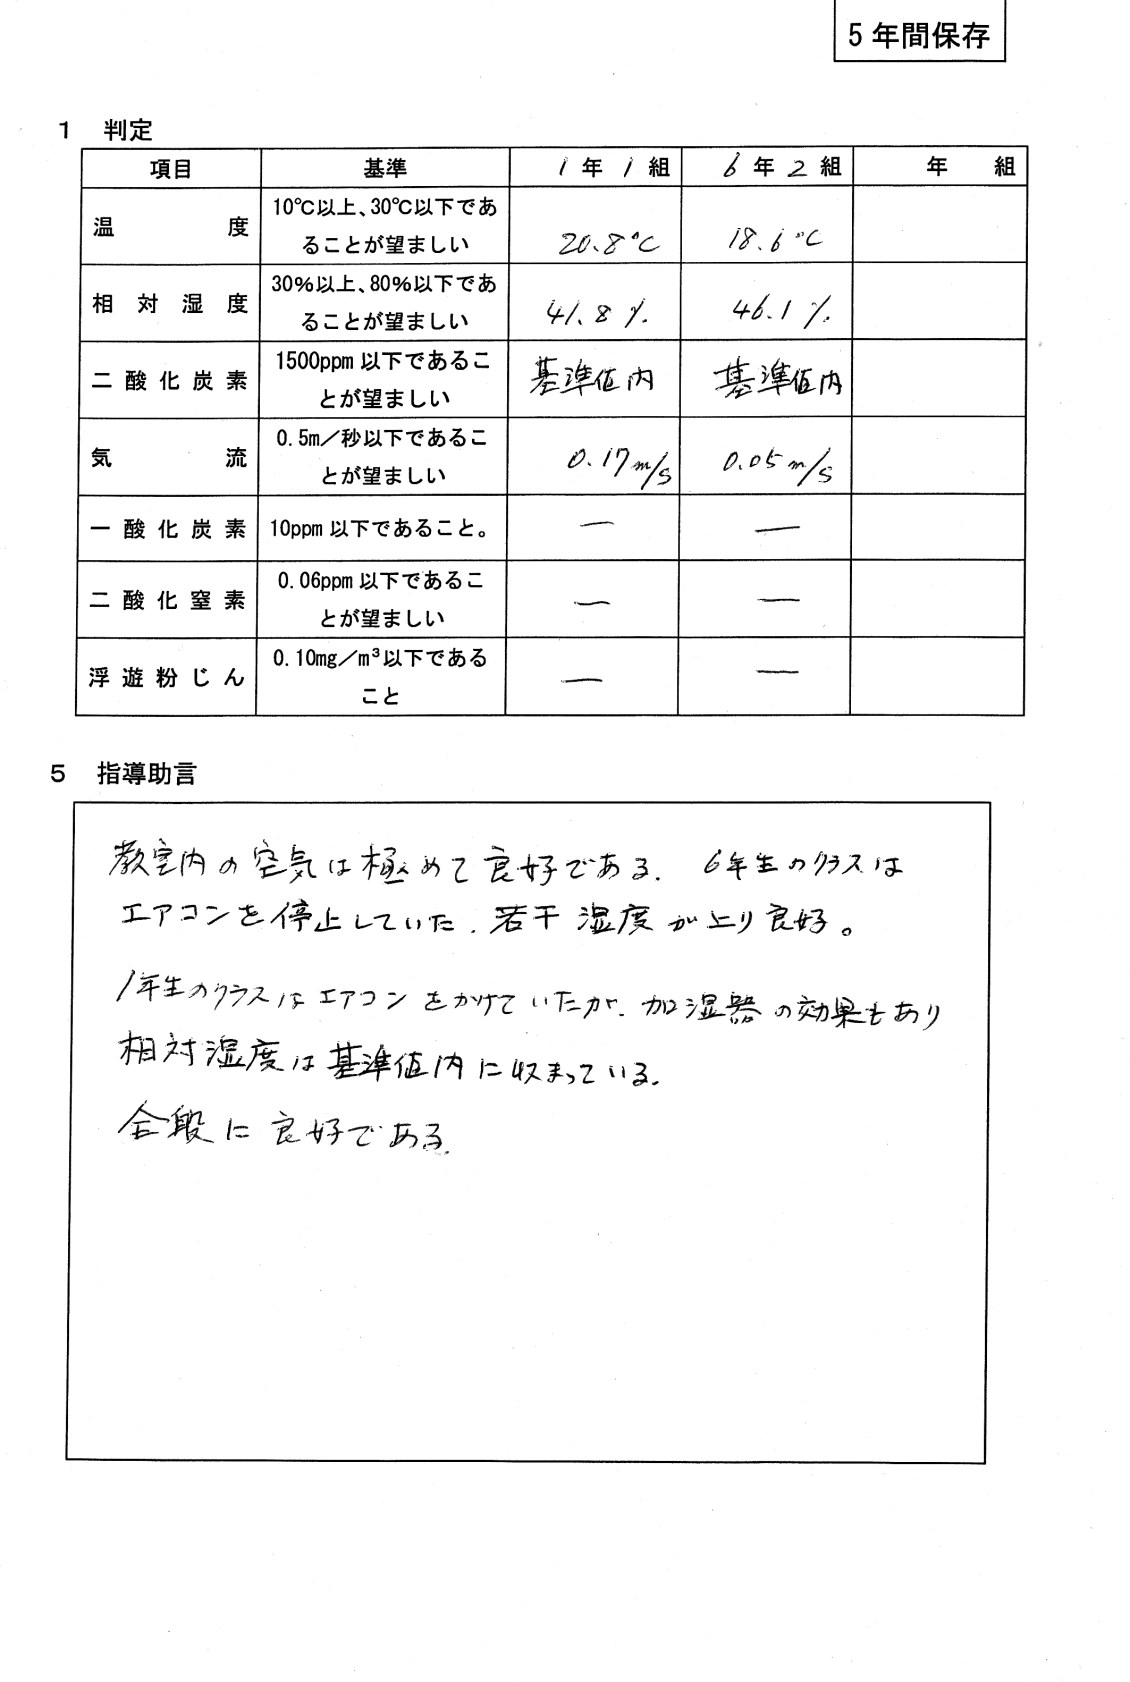 5年間保存
1 判定
項目 基準 1年1組 6年2組 年 組
温度 10℃以上、30℃以下であ
ることが望ましい 20.8℃ 18.6℃
相対湿度 30%以上、80%以下であ
ることが望ましい 41.8% 46.1%
二酸化炭素 1500ppm以下であるこ
とが望ましい 基準値内 基準値内
気流 0.5m/秒以下であるこ
とが望ましい 0.17m/s 0.05m/s
一酸化炭素 10ppm以下であること。 ー ー
二酸化窒素 0.06ppm以下であるこ
とが望ましい ー ー
浮遊粉じん 0.10mg/m³以下である
こと ー ー
5 指導助言
教室内の空気は極めて良好である. 6年生のクラスは
エアコンを停止していた. 若干湿度が上り良好。
1年生のクラスはエアコンをかけていたが. 加湿器の効果もあり
相対湿度は基準値内に収まっている.
全般に良好である.